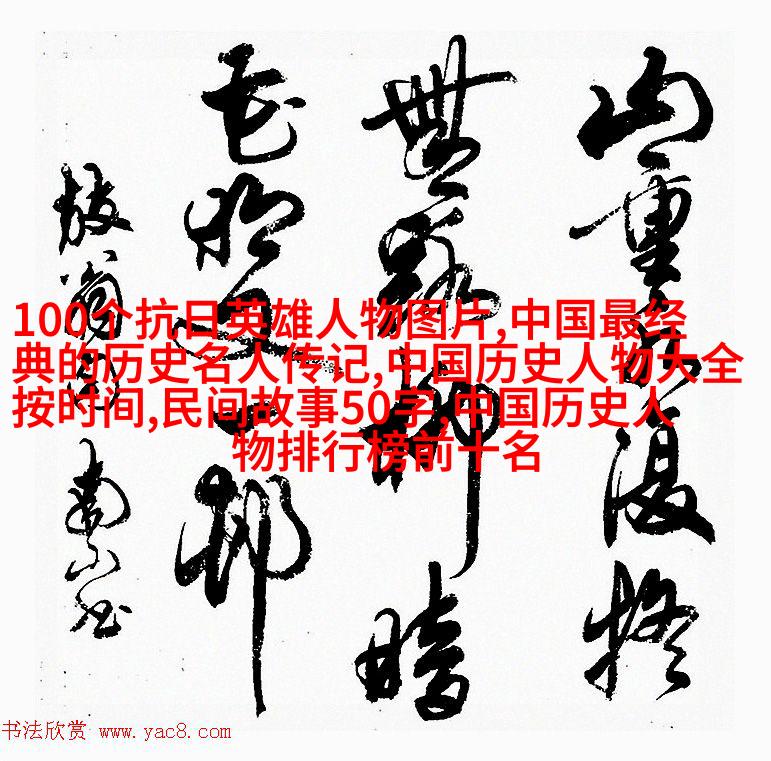 100个抗日英雄人物图片,中国最经
典的历史名人传记,中国历史人物大全
按时间,民间故事50字,中国历史人
物排行榜前十名
山重水復疑
無路柳暗
花明又一邨
放翁
书法欣赏 www.yac8.com